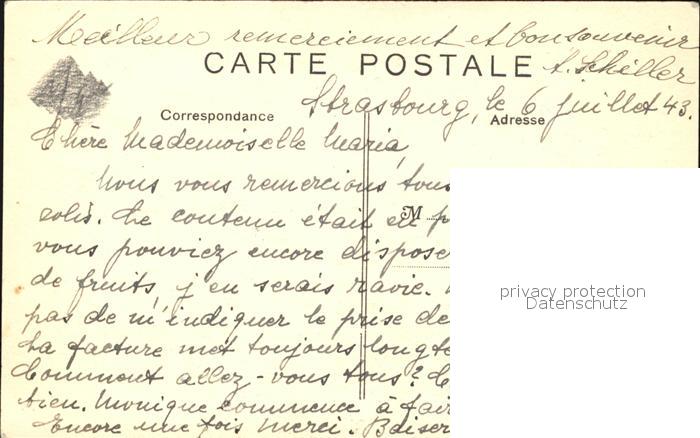 Meilleur remerciement et bon souvenir
CARTE POSTALE
A. Schiller
Strasbourg, le 6 juillet 43.
Correspondance
Adresse
Chère Mademoiselle Maria,
Nous vous remercions tous
colis. Le contenu était en p
M
vous pouviez encore dispose
de fruits j'en serais ravie.
pas de m'indiquer le prise de
La facture met toujours longte
Comment allez-vous tous? C
bien. Monique commence à fair
Encore une fois merci. Baiser
privacy protection
Datenschutz